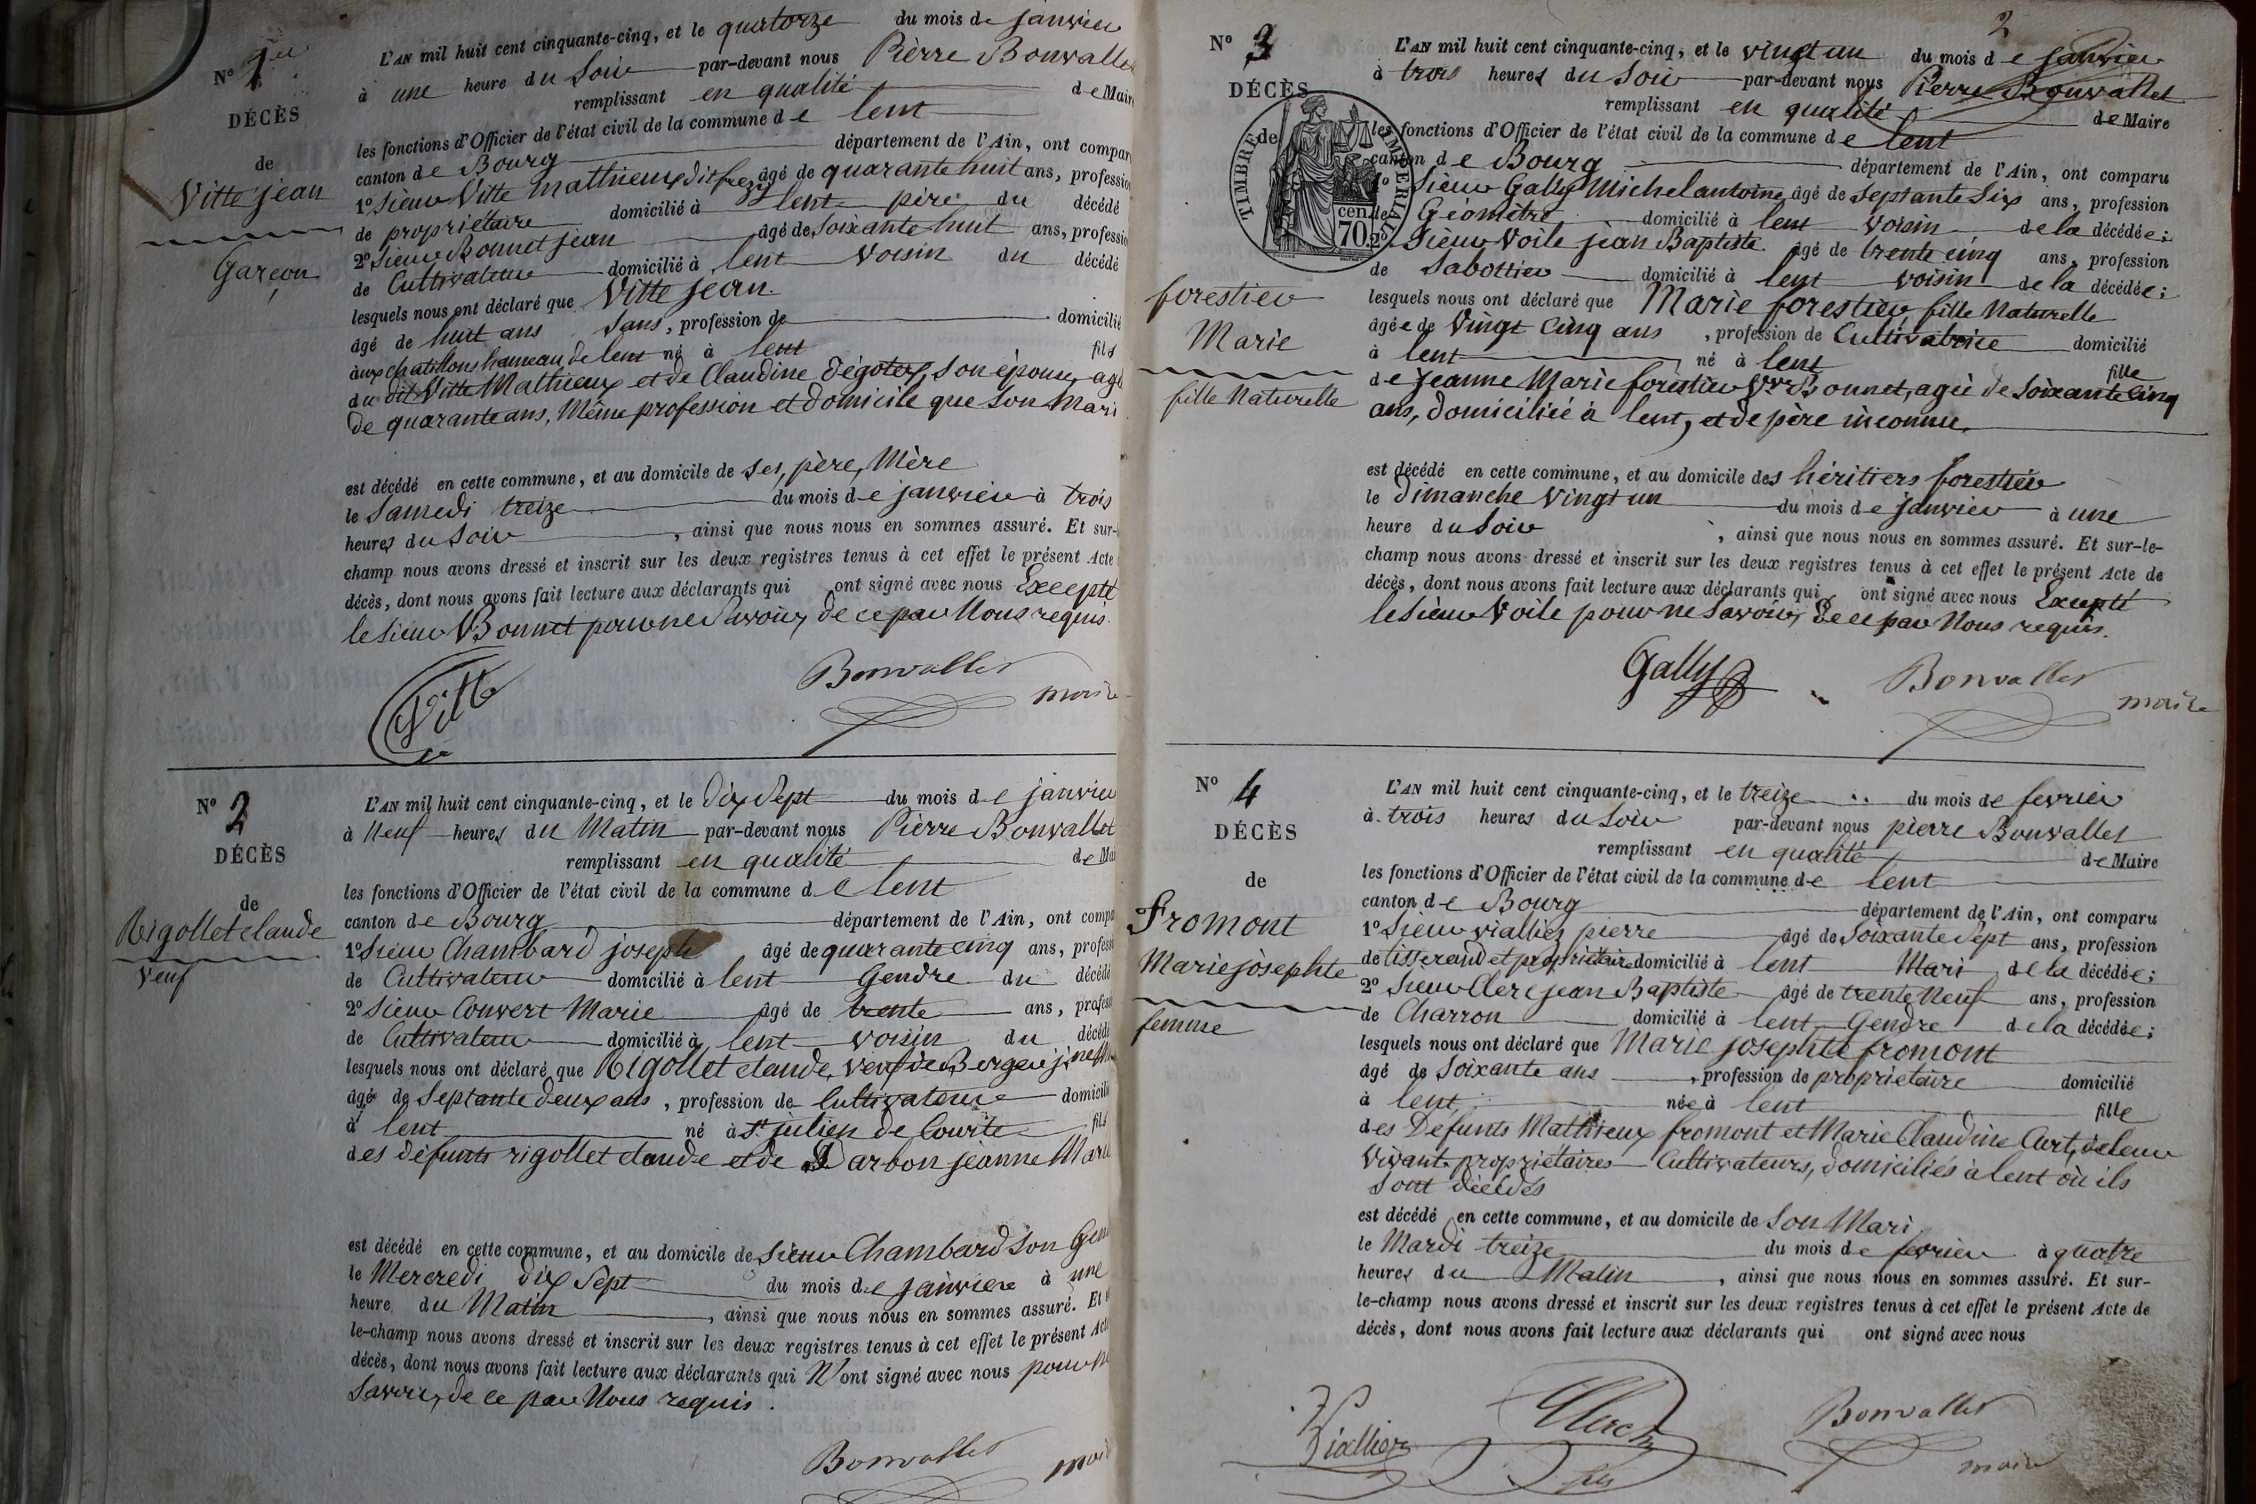 N° 1er
DÉCÈS
de
Vitte jean
Garçon
L'AN mil huit cent cinquante-cinq, et le quatorze du mois de janvier
à une heure du Soir par-devant nous Pièrre Bonvallet
remplissant en qualité de Maire
les fonctions d'Officier de l'état civil de la commune de lent
canton de Bourg département de l'Ain, ont compar
1° Sieur Vitte Mathieux dit âgé de quarante huit ans, profession
de propriétaire domicilié à lent père du décédé
2° Sieur Bonnet jean âgé de Soixante huit ans, profession
de Cultivateur domicilié à lent Voisin du décédé
lesquels nous ont déclaré que Vitte jean.
âgé de huit ans Sans, profession de domicilié
aux chatillons hameau de lent né à lent fils
du dit Vitte Mathieux et de Claudine Dégoteix, son épouse, agé
de quarante ans, Même profession et domicile que Son Mari
est décédé en cette commune, et au domicile de Ses, père, Mère
le Samedi treize du mois de janvier à trois
heures du Soir, ainsi que nous nous en sommes assuré. Et sur-
champ nous avons dressé et inscrit sur les deux registres tenus à cet effet le présent Acte
décès, dont nous avons fait lecture aux déclarants qui ont signé avec nous Excepté
le Sieur Bonnet pour ne Savoir, de ce par Nous requis.
Vitte Bonvallet maire
N° 2
DÉCÈS
de
Rigollet claude
Veuf
L'AN mil huit cent cinquante-cinq, et le dix Sept du mois de janvier
à Neuf heures du Matin par-devant nous Pièrre Bonvallet
remplissant en qualité de Mai
les fonctions d'Officier de l'état civil de la commune de lent
canton de Bourg département de l'Ain, ont compa
1° Sieur Chambard joseph âgé de quarante cinq ans, profess
de Cultivateur domicilié à lent Gendre du décédé
2° Sieur Convert Marie âgé de trente ans, profess
de Cultivateur domicilié à lent Voisin du décédé
lesquels nous ont déclaré que Rigollet claude, veuf de Berger
âgé de Septante deux ans, profession de Cultivateur domicilié
à lent né à St julien de Courte fils
des défunts rigollet claude et de Darbon jeanne Marie
est décédé en cette commune, et au domicile de Sieur Chambard Son Gen
le Mercredi dix Sept du mois de janvier à une
heure du Matin, ainsi que nous nous en sommes assuré. Et
le-champ nous avons dressé et inscrit sur les deux registres tenus à cet effet le présent Acte
décès, dont nous avons fait lecture aux déclarants qui N'ont signé avec nous pour ne
Savoir, de ce par Nous requis.
Bonvallet maire
2
N° 3
DÉCÈS
de
TIMBRE IMPÉRIAL
70 cen.
forestier
Marie
fille Naturelle
L'AN mil huit cent cinquante-cinq, et le vingt un du mois de janvier
à trois heures du Soir par-devant nous Pierre Bonvallet
remplissant en qualité de Maire
les fonctions d'Officier de l'état civil de la commune de lent
canton de Bourg département de l'Ain, ont comparu
1° Sieur Gally Michel antoine âgé de Septante Six ans, profession
de Géomètre domicilié à lent Voisin de la décédée;
2° Sieur Voile jean Baptiste âgé de trente cinq ans, profession
de Sabottier domicilié à lent voisin de la décédée;
lesquels nous ont déclaré que Marie forestier, fille Naturelle
âgée de Vingt Cinq ans, profession de Cultivatrice domicilié
à lent né à lent fille
de jeanne Marie forestier Vve Bonnet, agée de Soixante Cinq
ans, domiciliée à lent, et de père inconnu.
est décédé en cette commune, et au domicile des héritiers forestier
le dimanche vingt un du mois de janvier à une
heure du Soir, ainsi que nous nous en sommes assuré. Et sur-le-
champ nous avons dressé et inscrit sur les deux registres tenus à cet effet le présent Acte de
décès, dont nous avons fait lecture aux déclarants qui ont signé avec nous Excepté
le Sieur Voile pour ne Savoir, de ce par Nous requis.
Gally Bonvallet maire
N° 4
DÉCÈS
de
Fromont
Marie josephte
femme
L'AN mil huit cent cinquante-cinq, et le treize du mois de fevrier
à trois heures du Soir par-devant nous pierre Bonvallet
remplissant en qualité de Maire
les fonctions d'Officier de l'état civil de la commune de lent
canton de Bourg département de l'Ain, ont comparu
1° Sieur viallier pierre âgé de Soixante Sept ans, profession
de tisserand et propriétaire domicilié à lent Mari de la décédée;
2° Sieur Clerc jean Baptiste âgé de trente Neuf ans, profession
de Charron domicilié à lent Gendre de la décédée;
lesquels nous ont déclaré que Marie josephte fromont
âgé de Soixante ans, profession de propriétaire domicilié
à lent née à lent fille
des Defunts Mathieux fromont et Marie Claudine Curt, de leur
Vivant propriétaires Cultivateurs, domiciliés à lent où ils
Sont décédés
est décédé en cette commune, et au domicile de Son Mari
le Mardi treize du mois de fevrier à quatre
heures du Matin, ainsi que nous nous en sommes assuré. Et sur-
le-champ nous avons dressé et inscrit sur les deux registres tenus à cet effet le présent Acte de
décès, dont nous avons fait lecture aux déclarants qui ont signé avec nous
Viallier Clerc fils Bonvallet maire